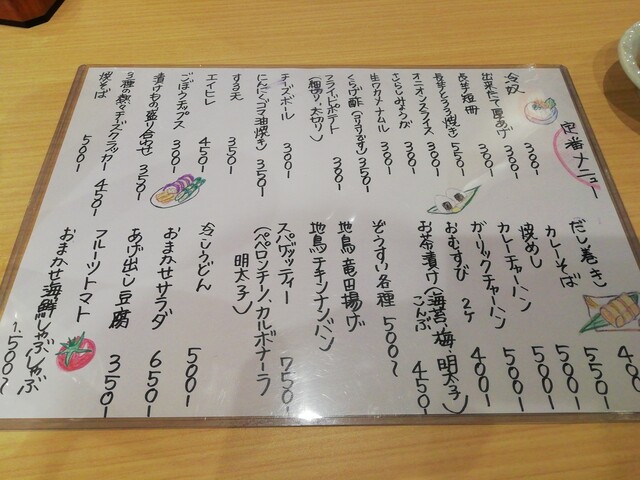 定番メニュー
冷奴 300-
出来たて厚あげ 300-
長芋短冊 300-
長芋とろろ焼き 550-
オニオンスライス 300-
さらしみょうが 300-
生ワカメナムル 300-
くらげ酢 300-
フライドポテト
(細切り、大切り)
チーズボール 300-
にんにく(ゴマ油焼き) 350-
するめ天 350-
エイヒレ 450-
ごぼうチップス 300-
漬けもの盛り合わせ 350-
3種の熱々チーズクラッカー 450-
焼そば 500-
だし巻き
カレーそば 550-
焼めし 500-
カレーチャーハン 500-
ガーリックチャーハン 500-
おむすび 2ケ 400-
お茶漬け(海苔・梅・明太子
こんぶ) 450-
ぞうすい各種 500〜
地鳥竜田揚げ
地鳥チキンナンバン
スパゲッティー 750-
(ペペロンチーノ、カルボナーラ
明太子)
冷しうどん 500-
おまかせサラダ 650-
あげ出し豆腐 350-
フルーツトマト
おまかせ海鮮しゃぶしゃぶ 1,500〜